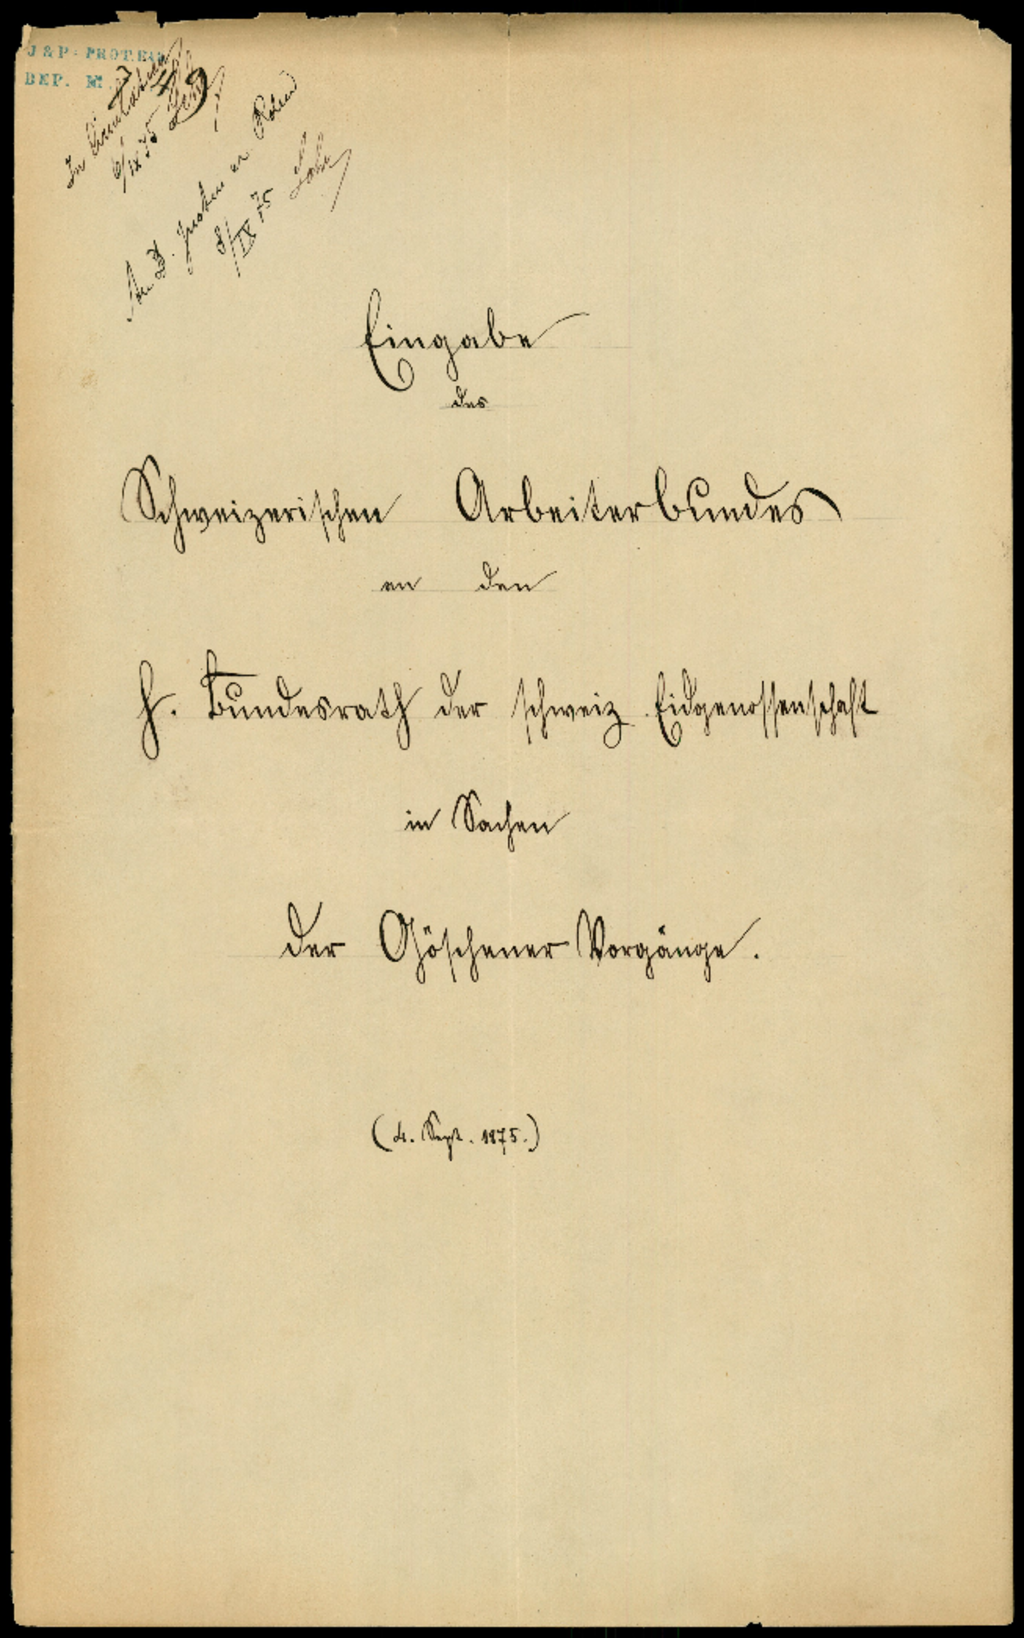 J & P - PROT.
DEP. №
In
6/IX 75
An D. Justiz u. Polizei
8/IX 75
Eingabe
des
Schweizerischen Arbeiterbundes
an den
h. Bundesrath der schweiz. Eidgenossenschaft
in Sachen
der Göschener Vorgänge.
(4. Sept. 1875.)